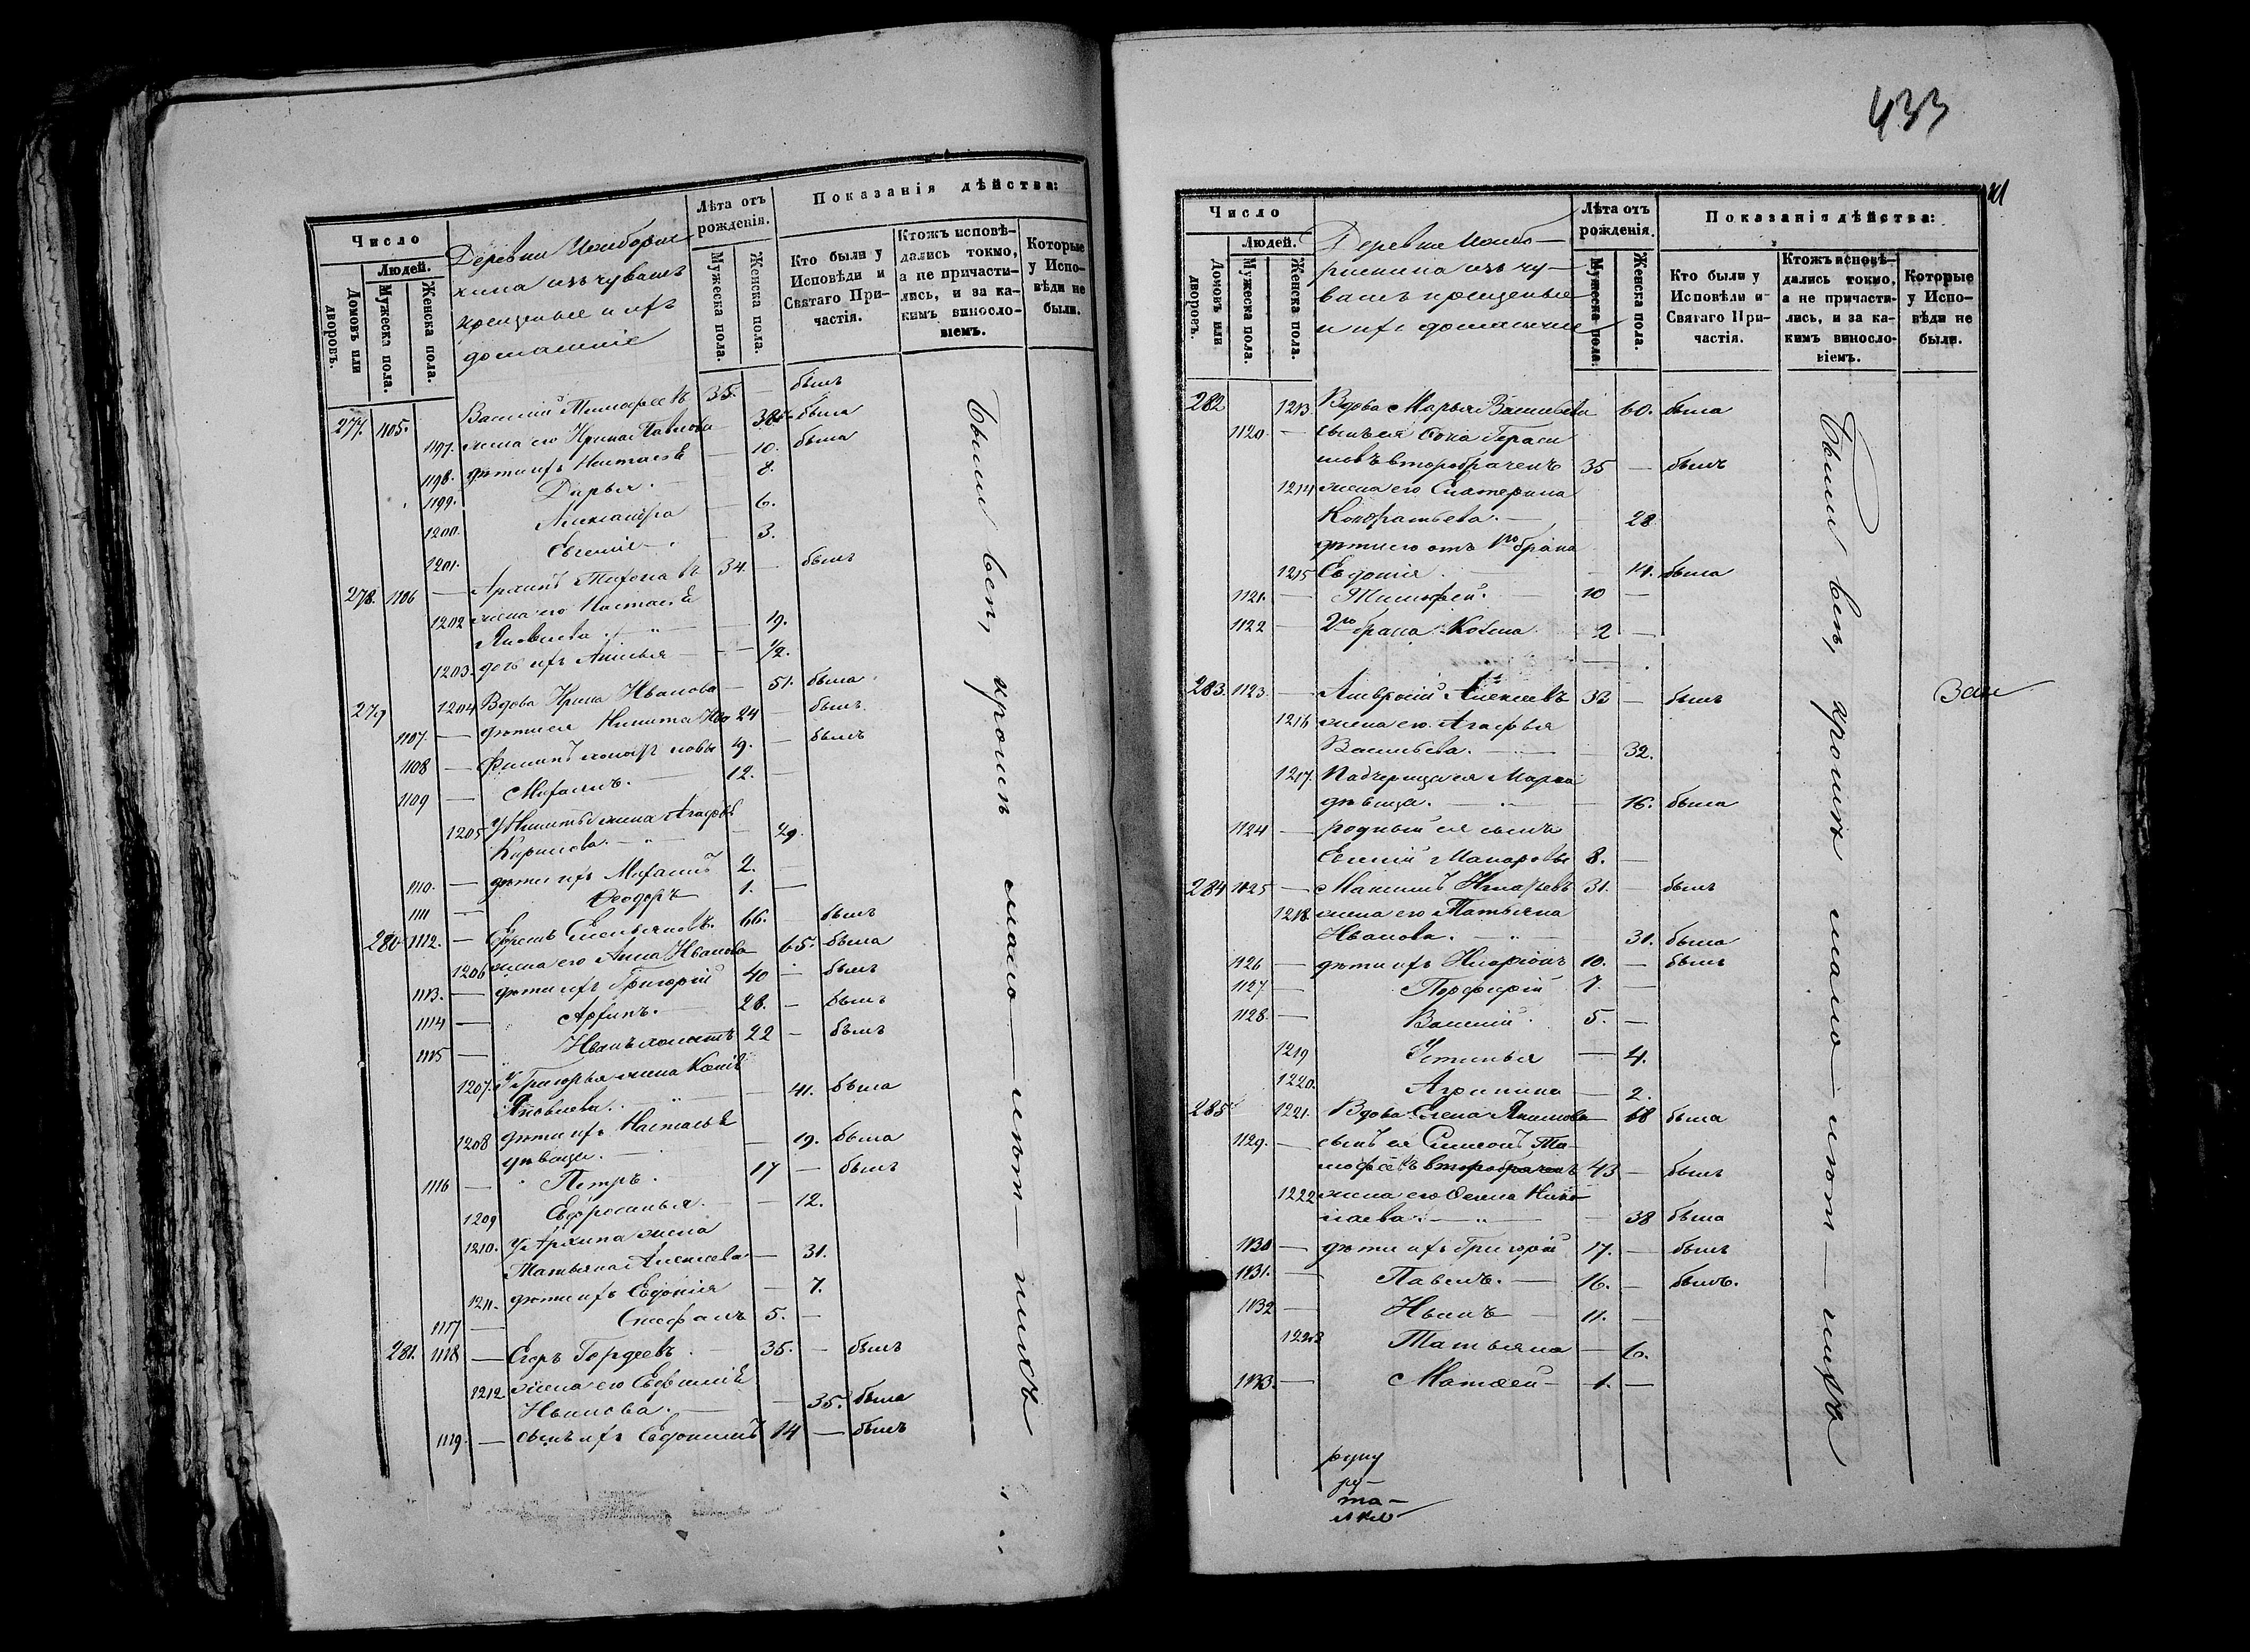 Число
Людей.
Домовъ или дворовъ.
Мужеска пола.
Женска пола.
Деревни
изъ чувашъ
крещеные и ихъ
домашніе
Лѣта отъ рожденія.
Мужеска пола.
Женска пола.
Показанія дѣйства:
Кто были у Исповѣди и Святаго Причастія.
Ктожъ исповѣдались токмо, а не причастились, и за какимъ винословіемъ.
Которые у Исповѣди не были.
277. 1105. Василий Тимофеевъ 35. — былъ
1197. жена его Ирина Павлова была
1198. дѣти ихъ Настасья — 10. была
1199. Дарья. — 8.
1200. Александра — 6.
1201. Евгения — 3.
278. 1106 — Архипъ 34. — былъ
1202 жена его Настасья
Яковлева — 19.
1203. дочь ихъ — 1/2.
279 1204 Вдова Ирина Иванова — 51. была
1107. — дѣти ея Никита 24 — былъ
1108 — Филипъ 19. — былъ
1109 — Михаилъ. 12. —
1205 У Никиты жена Агафья
Кирилова. — 29.
1110. — дѣти ихъ Михаилъ 2. —
1111 — Ѳеодоръ 1. —
280 1112. — Ефремъ Емельяновъ 66. былъ
1206 жена его Анна Иванова 65. была
1113. — дѣти ихъ Григорій 40 — былъ
1114 — Архипъ. 28. — былъ
1115 — Иванъ холостъ 22 — былъ
1207. У Григорья жена
Яковлева. — 41. была
1208 дѣти ихъ Настасья
дѣвица. — 19. была
1116 — Петръ. 17 — былъ
1209 Ефросинья. — 12.
1210. У Архипа жена
Татьяна Алексеева — 31.
1211. дѣти ихъ Евдокия — 7.
1117 — Стефанъ 5. —
281. 1118 — Егоръ Гордеевъ. 35. — былъ
1212 жена его
Иванова. — 35. была
1119. — сынъ ихъ Евдокимъ 14 — былъ
Были всѣ, кромѣ мало — лѣт — нихъ
433
Число
Людей.
Домовъ или дворовъ.
Мужеска пола.
Женска пола.
Деревни
изъ чу—
вашъ крещеные
и ихъ домашніе
Лѣта отъ рожденія.
Мужеска пола.
Женска пола.
Показанія дѣйства:
Кто были у Исповѣди и Святаго Причастія.
Ктожъ исповѣдались токмо, а не причастились, и за какимъ винословіемъ.
Которые у Исповѣди не были.
282 1213 Вдова Марья Васильева 60. была
1120 — сынъ ея Гераси
мовъ второбраченъ 35 — былъ
1214 жена его Екатерина
Кондратьева. — 28
дѣти его отъ 1го брака
1215 Евдокия — 14. была
1121. — Тимофей. 10 —
1122 — 2го брака Козьма 2 —
283. 1123. — Амвросій Алексеевъ 33 — былъ
1216 жена его Агафья
Васильева. — 32.
1217. Падчерица ея Марѳа
дѣвица. — 16. была
1124 — родный ея сынъ
Макаровъ 8. —
284 1125 — Максимъ 31. — былъ
1218 жена его Татьяна
Иванова. — 31. была
1126 — дѣти ихъ Иларіонъ 10. — былъ
1127 — Порфирій 7. —
1128. — Василий. 5. —
1219 Устинья — 4.
1220. Агрипина — 2.
285 1221. Вдова Елена Якимова 68 была
1129. — сынъ ея Симеонъ Ти—
мофеевъ второбраченъ 43 — былъ
1222 жена его Нико
лаева. — 38 была
1130 — дѣти ихъ Григорій 17. — былъ
1131. — Павелъ. — 16. — былъ.
1132 — Иванъ — 11. —
1223 Татьяна — 6.
1133. — Матѳей — 1. —
Были всѣ, кромѣ мало — лѣт — нихъ